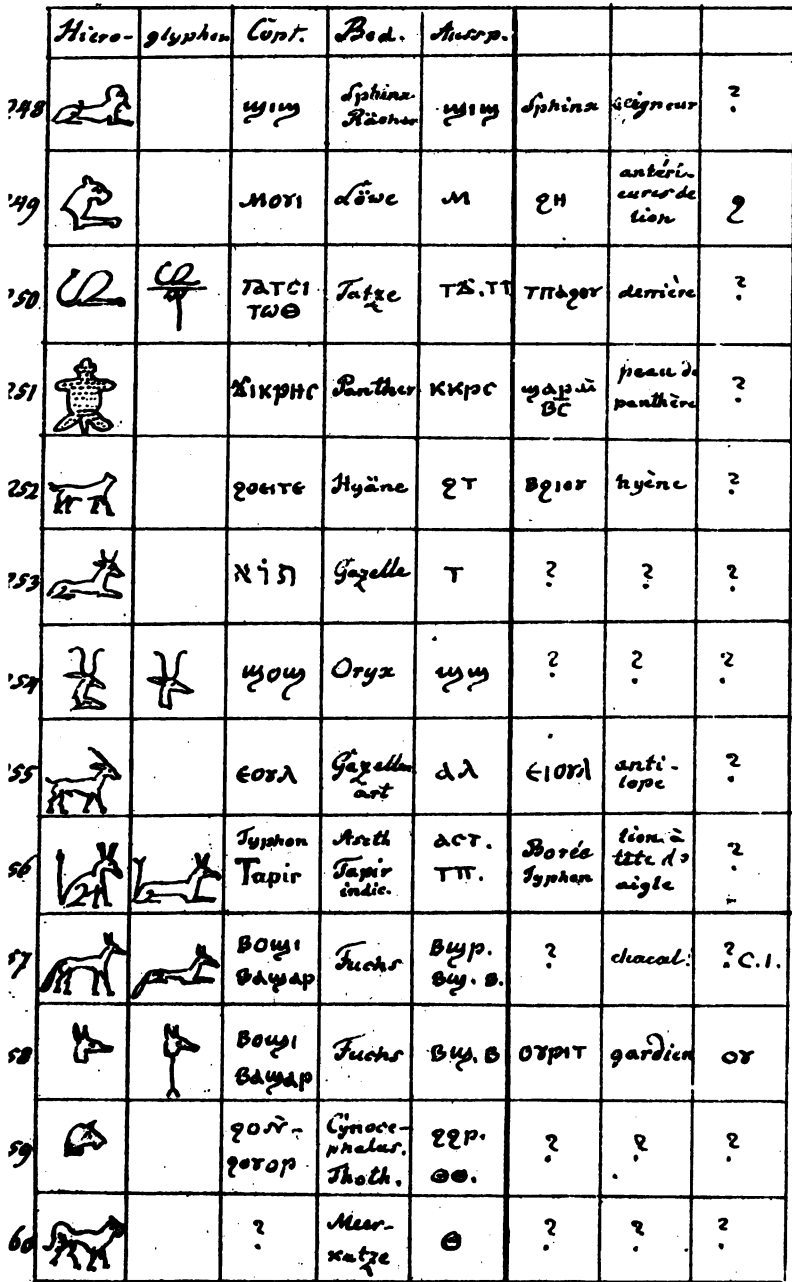 Hiero- glyphen Copt. Bed. Aussp.
248 ϣⲓϣ Sphinx Rächer ϣⲓϣ Sphinx seigneur ?
249 ⲙⲟⲩⲓ Löwe ⲙ ϩⲏ antéri-eures de lion ϩ
250 ⲧⲁⲧⲥⲓ ⲧⲱⲑ Tatze ⲧϫ.ⲧⲧ ⲧⲡⲁϩⲟⲩ derrière ?
251 ϫⲓⲕⲣⲏⲥ Panther ⲕⲕⲣⲥ ⲃⲥ peau de panthère ?
252 ϩⲟⲉⲓⲧⲉ Hyäne ϩⲧ ⲃϩⲓⲟⲩ hyène ?
253 תוֹא Gazelle ⲧ ? ? ?
254 ϣⲟϣ Oryx ϣϣ ? ? ?
255 ⲉⲟⲩⲗ Gazellen art ⲁⲗ ⲉⲓⲟⲩⲗ anti-lope ?
56 Typhon Tapir Aseth Tapir indic. ⲁⲥⲧ. ⲧⲡ. Borée Typhon lion à tête de aigle ?
57 ⲃⲟϣⲓ ⲃⲁϣⲁⲣ Fuchs ⲃϣⲣ. ⲃϣ.ⲃ. ? chacal. ? C.I.
58 ⲃⲟϣⲓ ⲃⲁϣⲁⲣ Fuchs ⲃϣ.ⲃ ⲟⲩⲣⲓⲧ gardien ⲟⲩ
59 ϩⲟⲩⲟⲣ Cynoce-phalus. Thoth. ϩϩⲣ. ⲑⲑ. ? ? ?
60 ? Meer-katze ⲑ ? ? ?